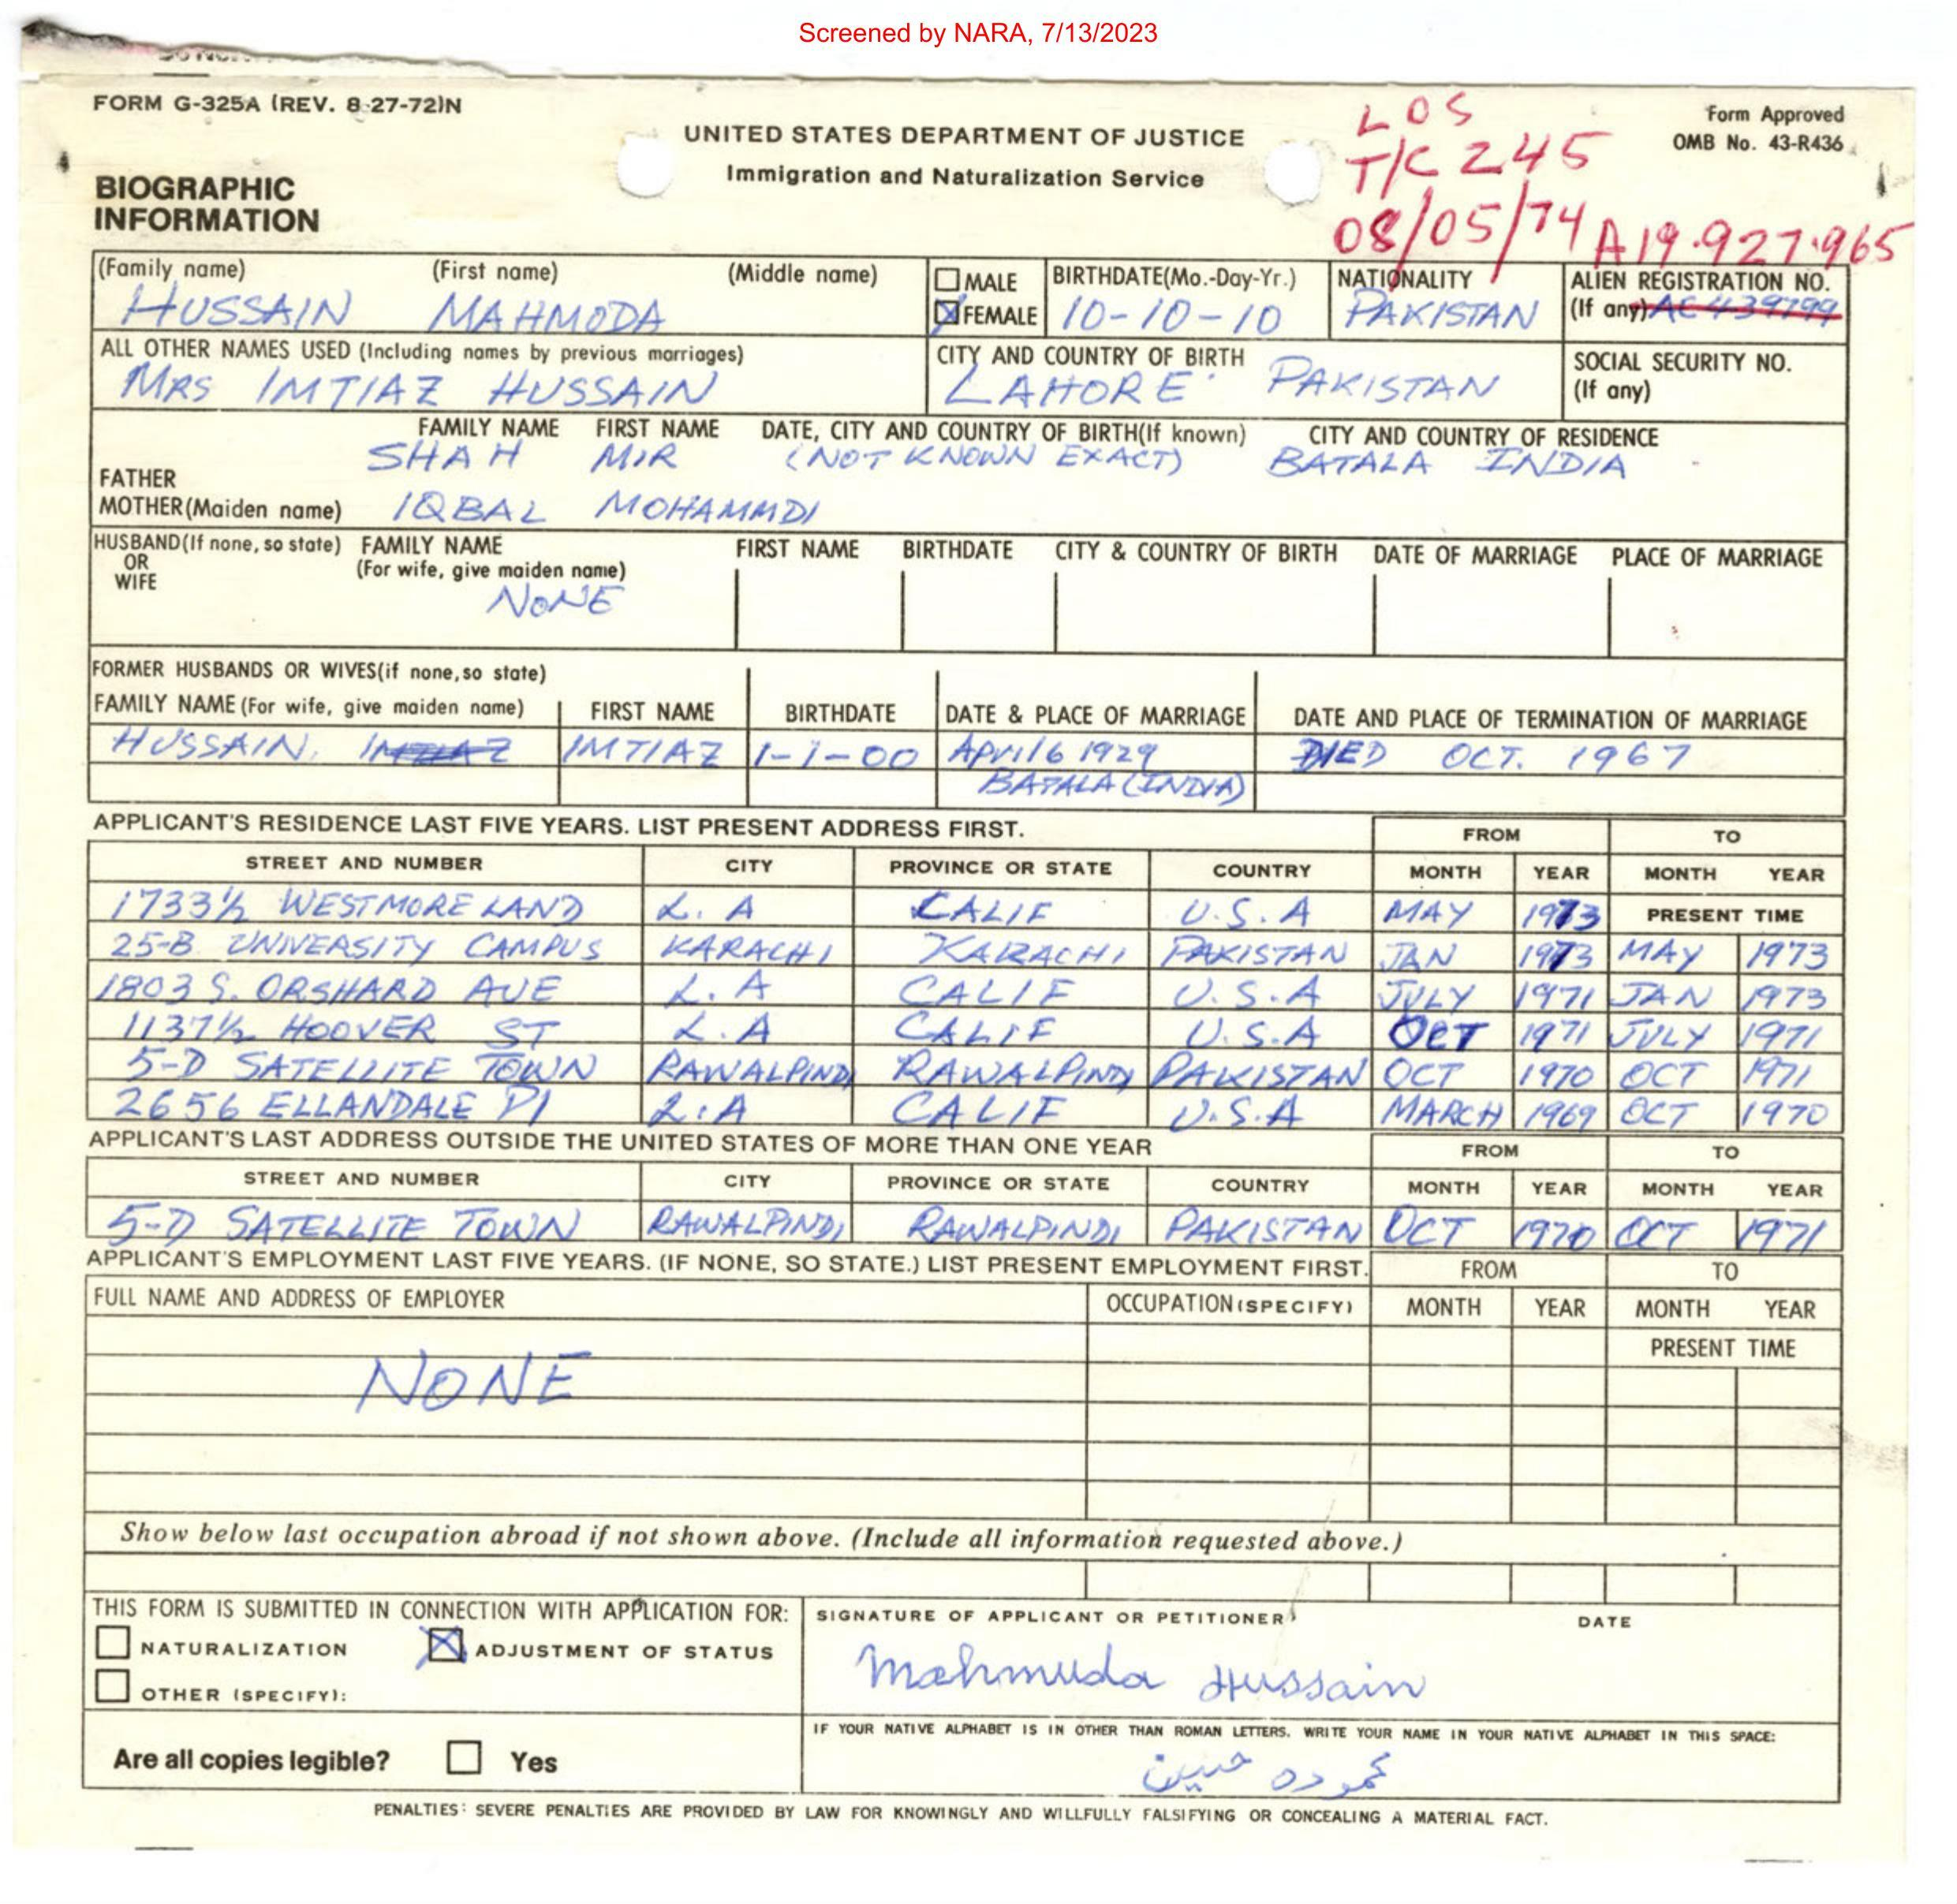 Screened by NARA, 7/13/2023
FORM G-325A (REV. 8-27-72)N
Form Approved
OMB No. 43-R436
UNITED STATES DEPARTMENT OF JUSTICE
Immigration and Naturalization Service
LOS
T/C 245
08/05/74 A19.927.965
BIOGRAPHIC
INFORMATION
(Family name) (First name) (Middle name) MALE BIRTHDATE(Mo.-Day-Yr.) NATIONALITY ALIEN REGISTRATION NO.
HUSSAIN MAHMODA FEMALE 10-10-10 PAKISTAN (If any)
ALL OTHER NAMES USED (Including names by previous marriages) CITY AND COUNTRY OF BIRTH SOCIAL SECURITY NO.
MRS IMTIAZ HUSSAIN LAHORE PAKISTAN (If any)
FAMILY NAME FIRST NAME DATE, CITY AND COUNTRY OF BIRTH(If known) CITY AND COUNTRY OF RESIDENCE
FATHER SHAH MIR (NOT KNOWN EXACT) BATALA INDIA
MOTHER(Maiden name) IQBAL MOHAMMDI
HUSBAND(If none, so state) FAMILY NAME FIRST NAME BIRTHDATE CITY & COUNTRY OF BIRTH DATE OF MARRIAGE PLACE OF MARRIAGE
OR (For wife, give maiden name)
WIFE
NONE
FORMER HUSBANDS OR WIVES(if none,so state)
FAMILY NAME (For wife, give maiden name) FIRST NAME BIRTHDATE DATE & PLACE OF MARRIAGE DATE AND PLACE OF TERMINATION OF MARRIAGE
HUSSAIN, IMTIAZ IMTIAZ 1-1-00 April 6 1929 DIED OCT. 1967
BATALA (INDIA)
APPLICANT'S RESIDENCE LAST FIVE YEARS. LIST PRESENT ADDRESS FIRST. FROM TO
STREET AND NUMBER CITY PROVINCE OR STATE COUNTRY MONTH YEAR MONTH YEAR
1733½ WESTMORELAND L.A CALIF U.S.A MAY 1973 PRESENT TIME
25-B UNIVERSITY CAMPUS KARACHI KARACHI PAKISTAN JAN 1973 MAY 1973
1803 S. ORSHARD AUE L.A CALIF U.S.A JULY 1971 JAN 1973
1137½ HOOVER ST L.A CALIF U.S.A OCT 1971 JULY 1971
5-D SATELLITE TOWN RAWALPINDI RAWALPINDI PAKISTAN OCT 1970 OCT 1971
2656 ELLANDALE Pl L.A CALIF U.S.A MARCH 1969 OCT 1970
APPLICANT'S LAST ADDRESS OUTSIDE THE UNITED STATES OF MORE THAN ONE YEAR FROM TO
STREET AND NUMBER CITY PROVINCE OR STATE COUNTRY MONTH YEAR MONTH YEAR
5-D SATELLITE TOWN RAWALPINDI RAWALPINDI PAKISTAN OCT 1970 OCT 1971
APPLICANT'S EMPLOYMENT LAST FIVE YEARS. (IF NONE, SO STATE.) LIST PRESENT EMPLOYMENT FIRST. FROM TO
FULL NAME AND ADDRESS OF EMPLOYER OCCUPATION (SPECIFY) MONTH YEAR MONTH YEAR
PRESENT TIME
NONE
Show below last occupation abroad if not shown above. (Include all information requested above.)
THIS FORM IS SUBMITTED IN CONNECTION WITH APPLICATION FOR: SIGNATURE OF APPLICANT OR PETITIONER DATE
NATURALIZATION ADJUSTMENT OF STATUS
Mahmuda Hussain
OTHER (SPECIFY):
IF YOUR NATIVE ALPHABET IS IN OTHER THAN ROMAN LETTERS, WRITE YOUR NAME IN YOUR NATIVE ALPHABET IN THIS SPACE:
Are all copies legible? Yes
محموده حسین
PENALTIES: SEVERE PENALTIES ARE PROVIDED BY LAW FOR KNOWINGLY AND WILLFULLY FALSIFYING OR CONCEALING A MATERIAL FACT.